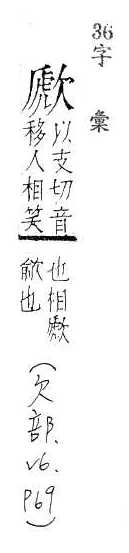 36字彙
歋
以支切音
移人相笑
也相歋
歈也
(欠部、v6. P69)